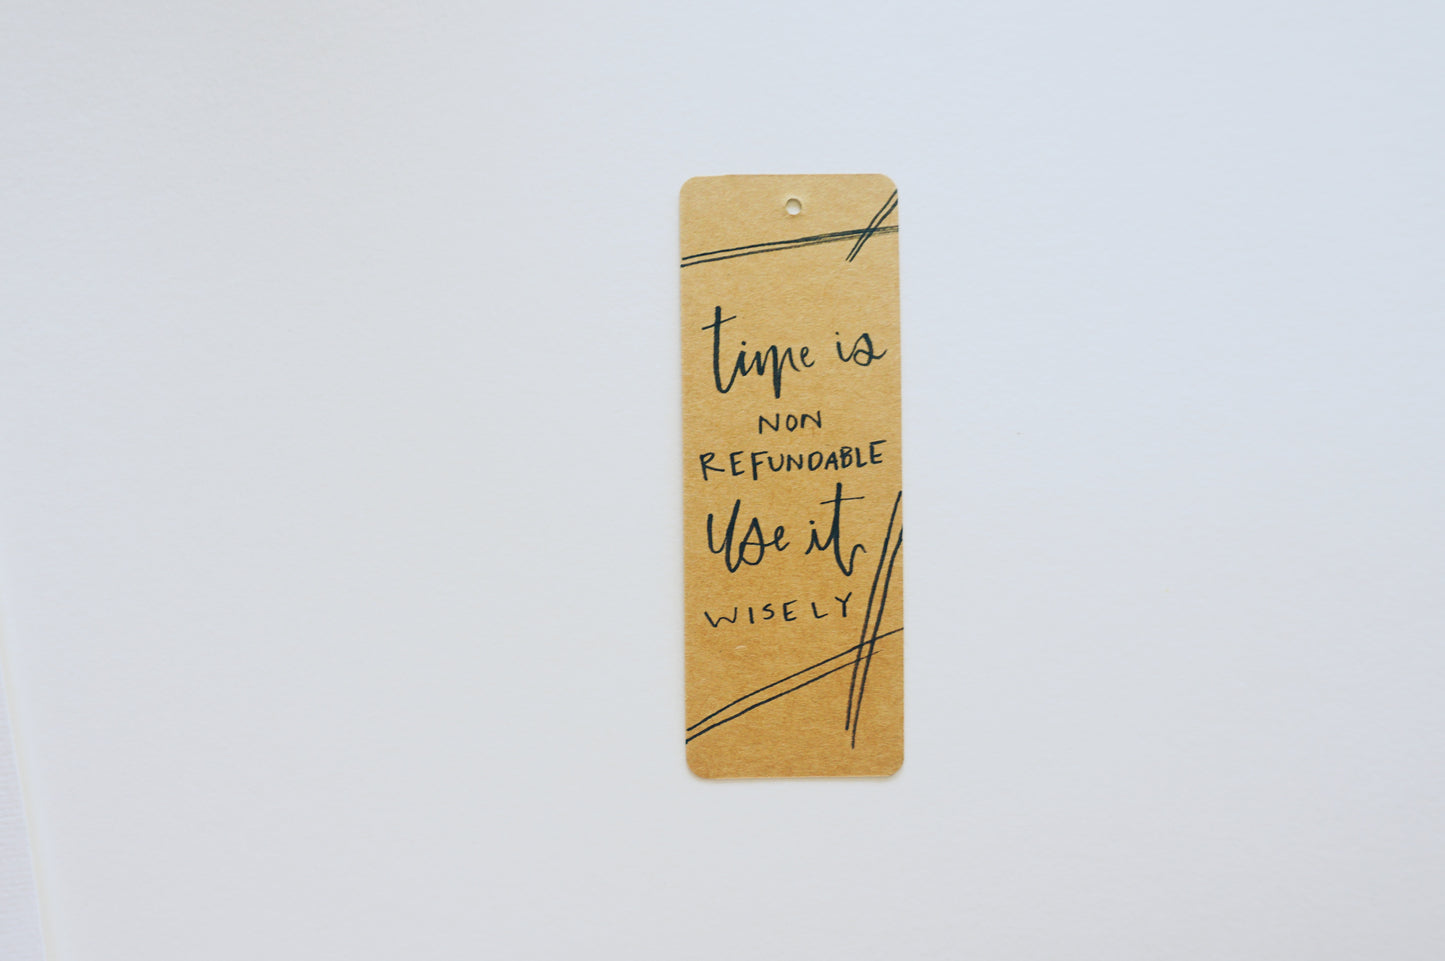 time is
NON
REFUNDABLE
Use it
WISELY